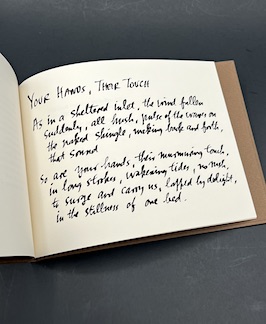 Your Hands, Their Touch
As in a sheltered inlet, the wind fallen
suddenly, all hush, pulse of the waves on
the naked shingle, making back and forth,
that sound
So are your hands, their murmuring touch,
in long strokes, wakening tides, no rush,
to surge and carry us, lapped by delight,
in the stillness of one bed.